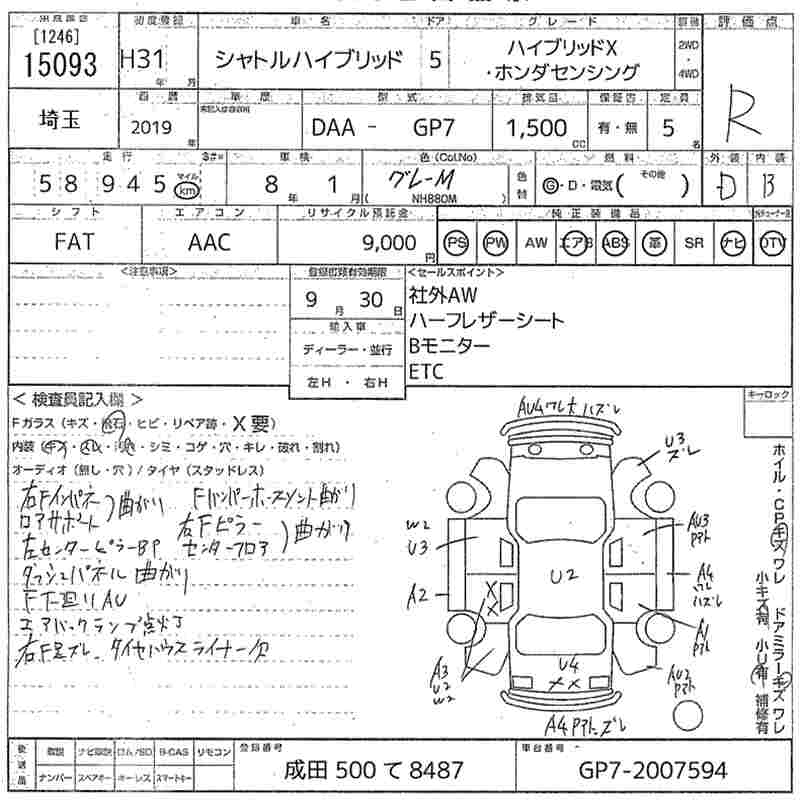 [1246]
15093
初度登録
H31
年 月
車名
シャトルハイブリッド
ドア
5
グレード
ハイブリッドX
・ホンダセンシング
2WD
・
4WD
評価点
R
埼玉
西暦
2019
年
車歴
型式
DAA - GP7
排気量
1,500
CC
保証書
有・無
定員
5
名
走行
58945
マイル
km
車検
8 年 1 月
色(Col.No)
グレーM
( NH880M )
色替
燃料
G・D・電気( その他 )
外装
D
内装
B
シフト
FAT
エアコン
AAC
リサイクル預託金
9,000 円
純正装備品
PS PW AW エアB ABS 革 SR ナビ TV
<注意事項>
登録名義有効期限
9 月 30 日
輸入車
ディーラー・並行
左H・右H
<セールスポイント>
社外AW
ハーフレザーシート
Bモニター
ETC
<検査員記入欄>
Fガラス(キズ・飛石・ヒビ・リペア跡・X要)
内装(キズ・汚れ・凹・シミ・コゲ・穴・キレ・破れ・割れ)
オーディオ(無し・穴)/タイヤ(スタッドレス)
右Fインパネ
ロアサポート 曲がり
Fバンパーホースメント曲がり
左センターピラーBP
右Fピラー
センターフロア 曲がり
ダッシュパネル曲がり
F下廻りAU
エアバックランプ点灯
右F足ズレ タイヤハウスライナー欠
キーロック
AU4ワレ大ハズレ
U3
ズレ
W2
U3
AU3
A2
U2
A4
ワレ
ハズレ
A1
A3
U2
W2
U4
AU2
ホイル・CPキズワレ
ドアミラーキズワレ
小キズ有 小U有 補修有
後送品
取説
ナビ取説
ロム/SD
B-CAS
リモコン
ナンバー
スペアキー
キーレス
スマートキー
登録番号
成田 500 て 8487
車台番号
GP7-2007594